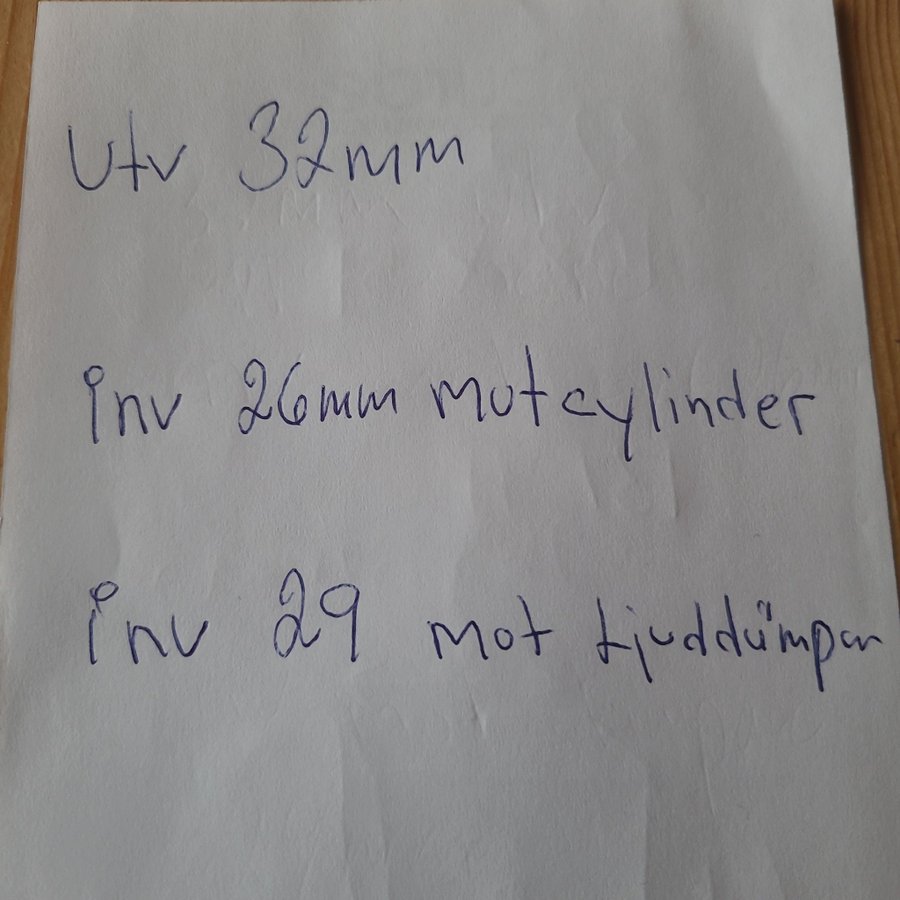 Utv 32mm
inv 26mm mot cylinder
inv 29 mot Ljuddämpar